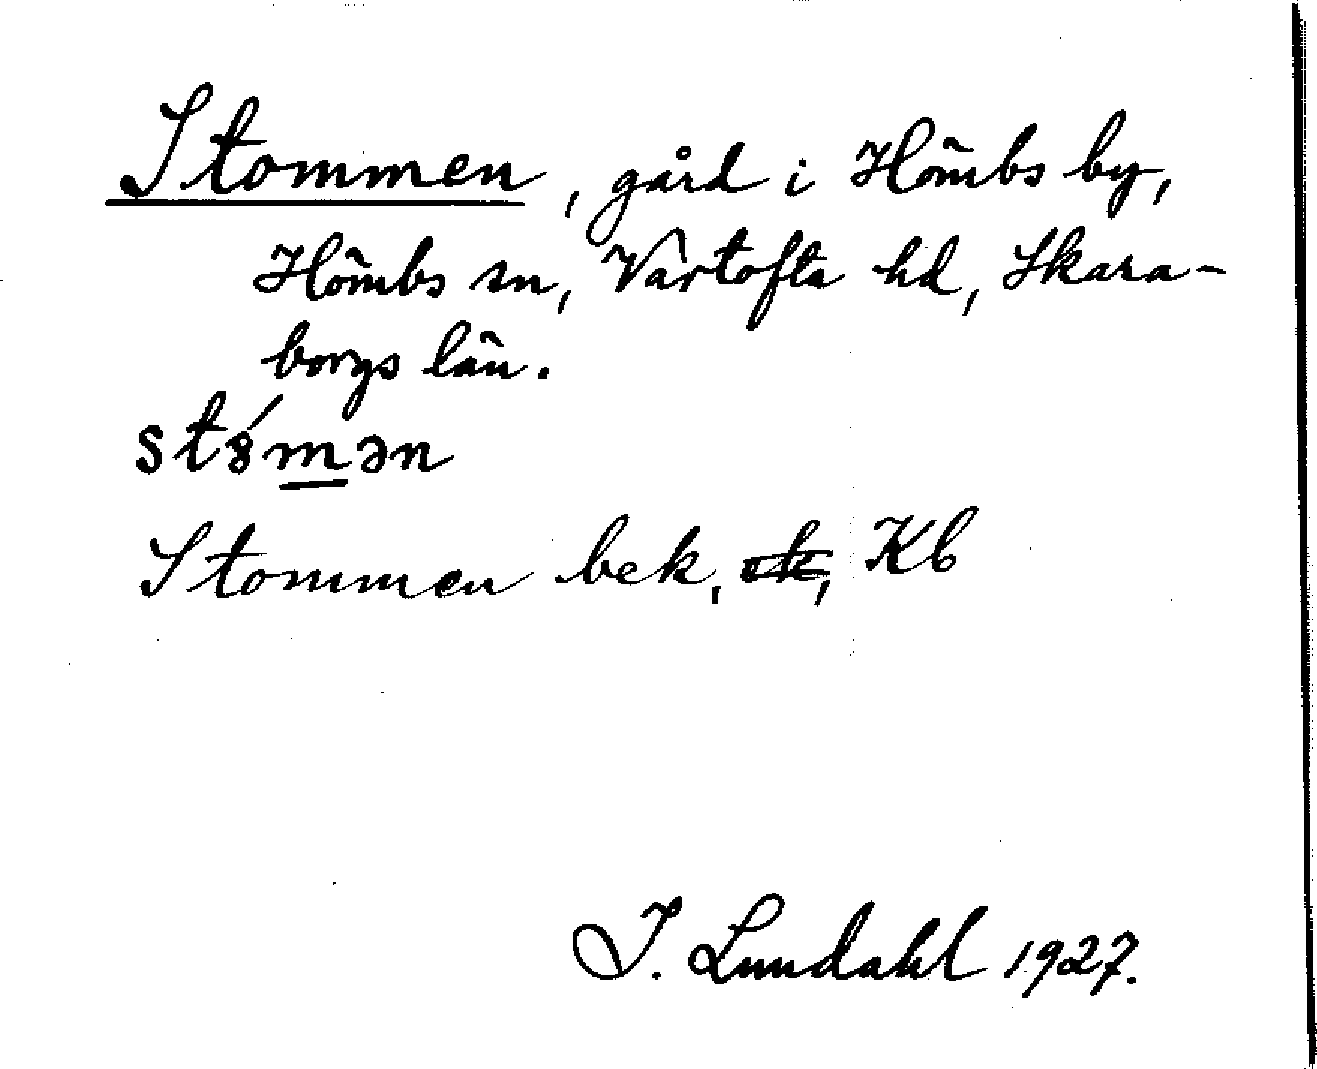 Stommen, gård i Hömbs by,
Hömbs sn, Vartofta hd, Skara-
borgs län.
stȣ́mən
Stommen bek, ek, Kb
I. Lundahl 1927.